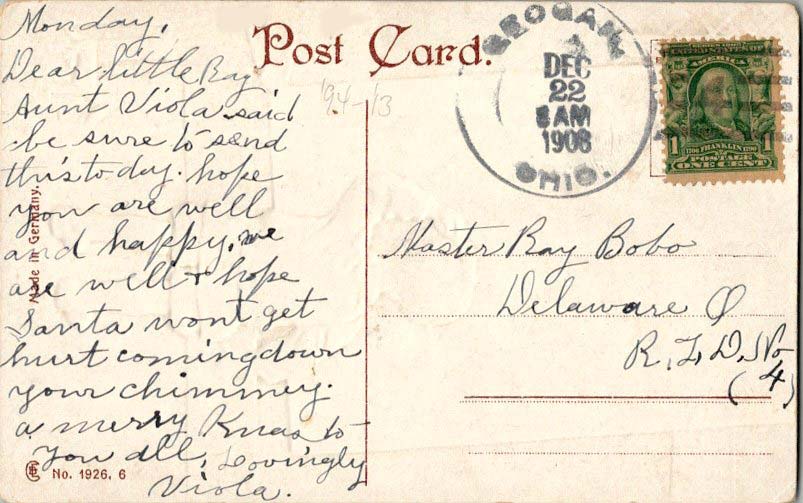 Monday,
Dear little Ray
Aunt Viola said
be sure to send
this to day. hope
you are well
and happy, we
are well & hope
Santa wont get
hurt coming down
your chimney.
a merry Xmas to
you all, Lovingly
Viola.
Made in Germany.
No. 1926, 6
Post Card.
'94-13
DEC
22
AM
1908
OHIO.
SERIES 1902
UNITED STATES OF
AMERICA
1706 FRANKLIN 1790
1 POSTAGE 1
ONE CENT
Master Ray Bobo
Delaware O
R.F.D. No
(4)